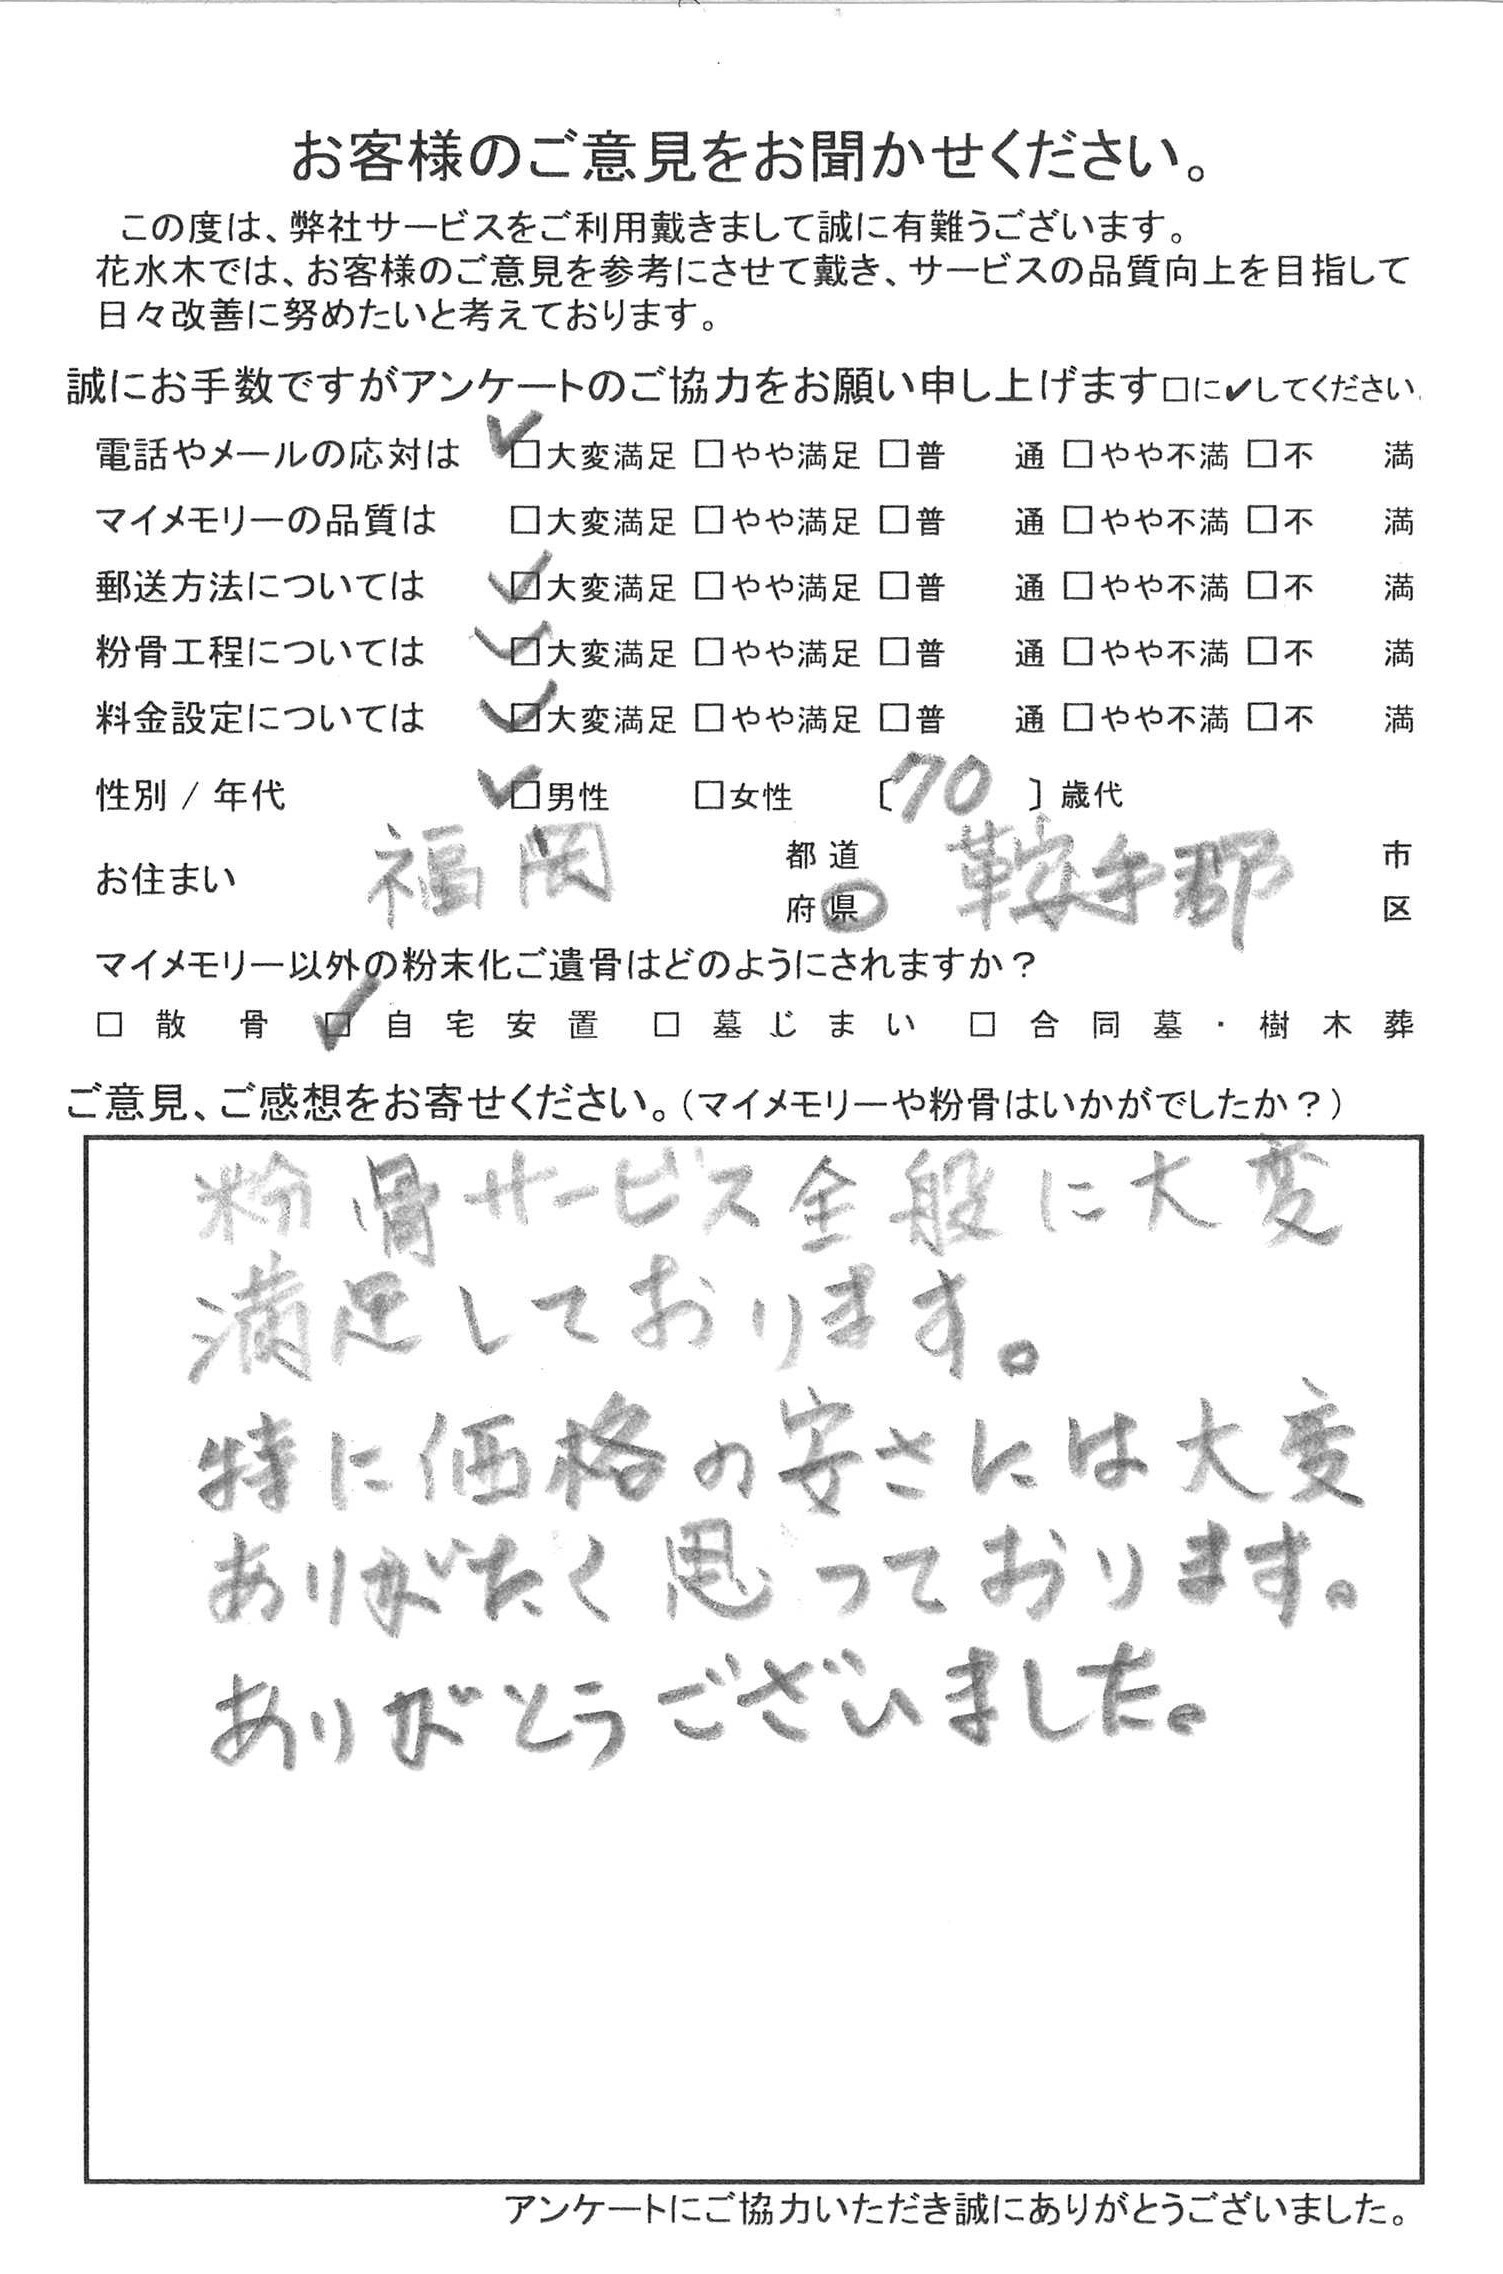 お客様のご意見をお聞かせください。
この度は、弊社サービスをご利用戴きまして誠に有難うございます。
花水木では、お客様のご意見を参考にさせて戴き、サービスの品質向上を目指して
日々改善に努めたいと考えております。
誠にお手数ですがアンケートのご協力をお願い申し上げます□に✔してください.
電話やメールの応対は ✔□大変満足 □やや満足 □普 通 □やや不満 □不 満
マイメモリーの品質は □大変満足 □やや満足 □普 通 □やや不満 □不 満
郵送方法については ✔□大変満足 □やや満足 □普 通 □やや不満 □不 満
粉骨工程については ✔□大変満足 □やや満足 □普 通 □やや不満 □不 満
料金設定については ✔□大変満足 □やや満足 □普 通 □やや不満 □不 満
性別 / 年代 ✔□男性 □女性 〔70 〕歳代
お住まい 福岡 都道府県 鞍手郡 市区
マイメモリー以外の粉末化ご遺骨はどのようにされますか？
□ 散骨 ✔□ 自宅安置 □ 墓じまい □ 合同墓・樹木葬
ご意見、ご感想をお寄せください。（マイメモリーや粉骨はいかがでしたか？）
粉骨サービス全般に大変
満足しております。
特に価格の安さには大変
ありがたく思っております。
ありがとうございました。
アンケートにご協力いただき誠にありがとうございました。